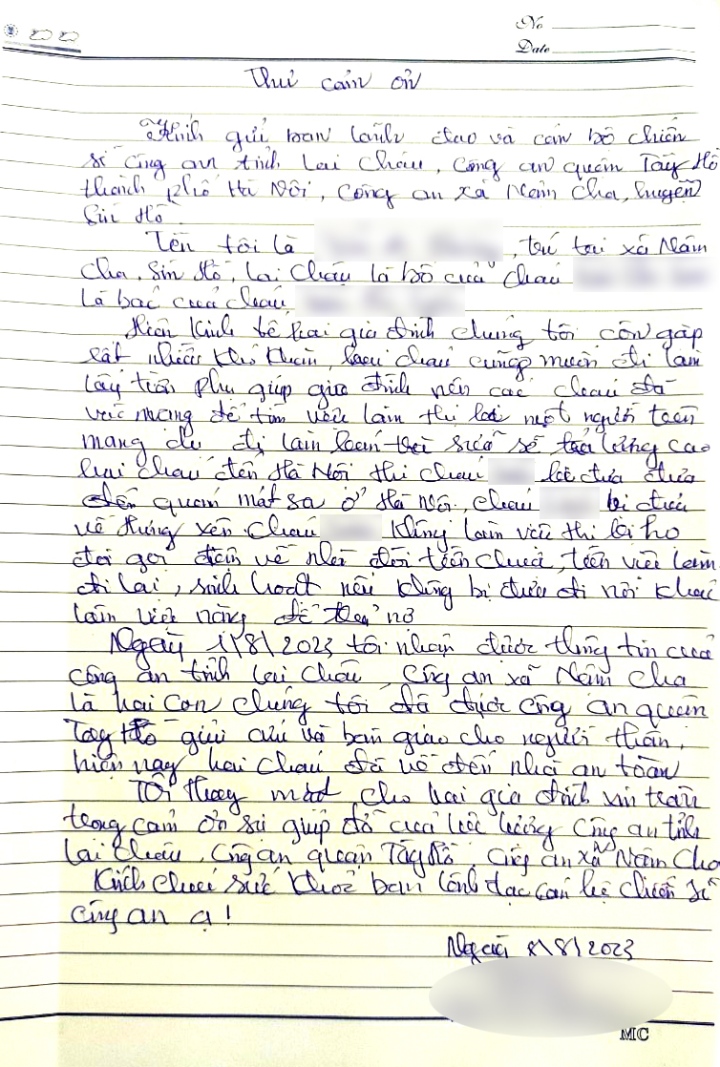 No
Date
Thư cảm ơn
Kính gửi ban lãnh đạo và cán bộ chiến
sĩ công an tỉnh Lai Châu, Công an quận Tây Hồ
thành phố Hà Nội, Công an xã Nậm Cha, huyện
Sìn Hồ.
Tên tôi là , trú tại xã Nậm
Cha, Sìn Hồ, Lai Châu là bố của cháu
là bác của cháu,
Hiện kinh tế hai gia đình chúng tôi còn gặp
rất nhiều khó khăn, hai cháu cũng muốn đi làm
lấy tiền phụ giúp gia đình nên các cháu đã
để tìm việc làm thì một người trên
mạng dụ đi làm sẽ trả lương cao
hai cháu đến Hà Nội thì cháu đưa
đến quán mát sa ở Hà Nội, cháu bị đưa
về Hưng Yên cháu không làm việc thì bị họ
đòi gọi điện về nhà đòi tiền chuộc, tiền việc làm
đi lại, sinh hoạt nếu không bị đưa đi nơi khác
làm việc nặng để trả nợ
Ngày 1/8/2023 tôi nhận được thông tin của
công an tỉnh Lai Châu, Công an xã Nậm Cha
là hai con chúng tôi đã được công an quận
Tây Hồ giải cứu và bàn giao cho người thân,
hiện nay hai cháu đã về đến nhà an toàn
Tôi thay mặt cho hai gia đình xin trân
trọng cảm ơn sự giúp đỡ của lực lượng Công an tỉnh
Lai Châu, Công an quận Tây Hồ, Công an xã Nậm Cha
Kính chúc sức khoẻ ban lãnh đạo cán bộ chiến sĩ
công an ạ!
Ngày 8/8/2023
MC